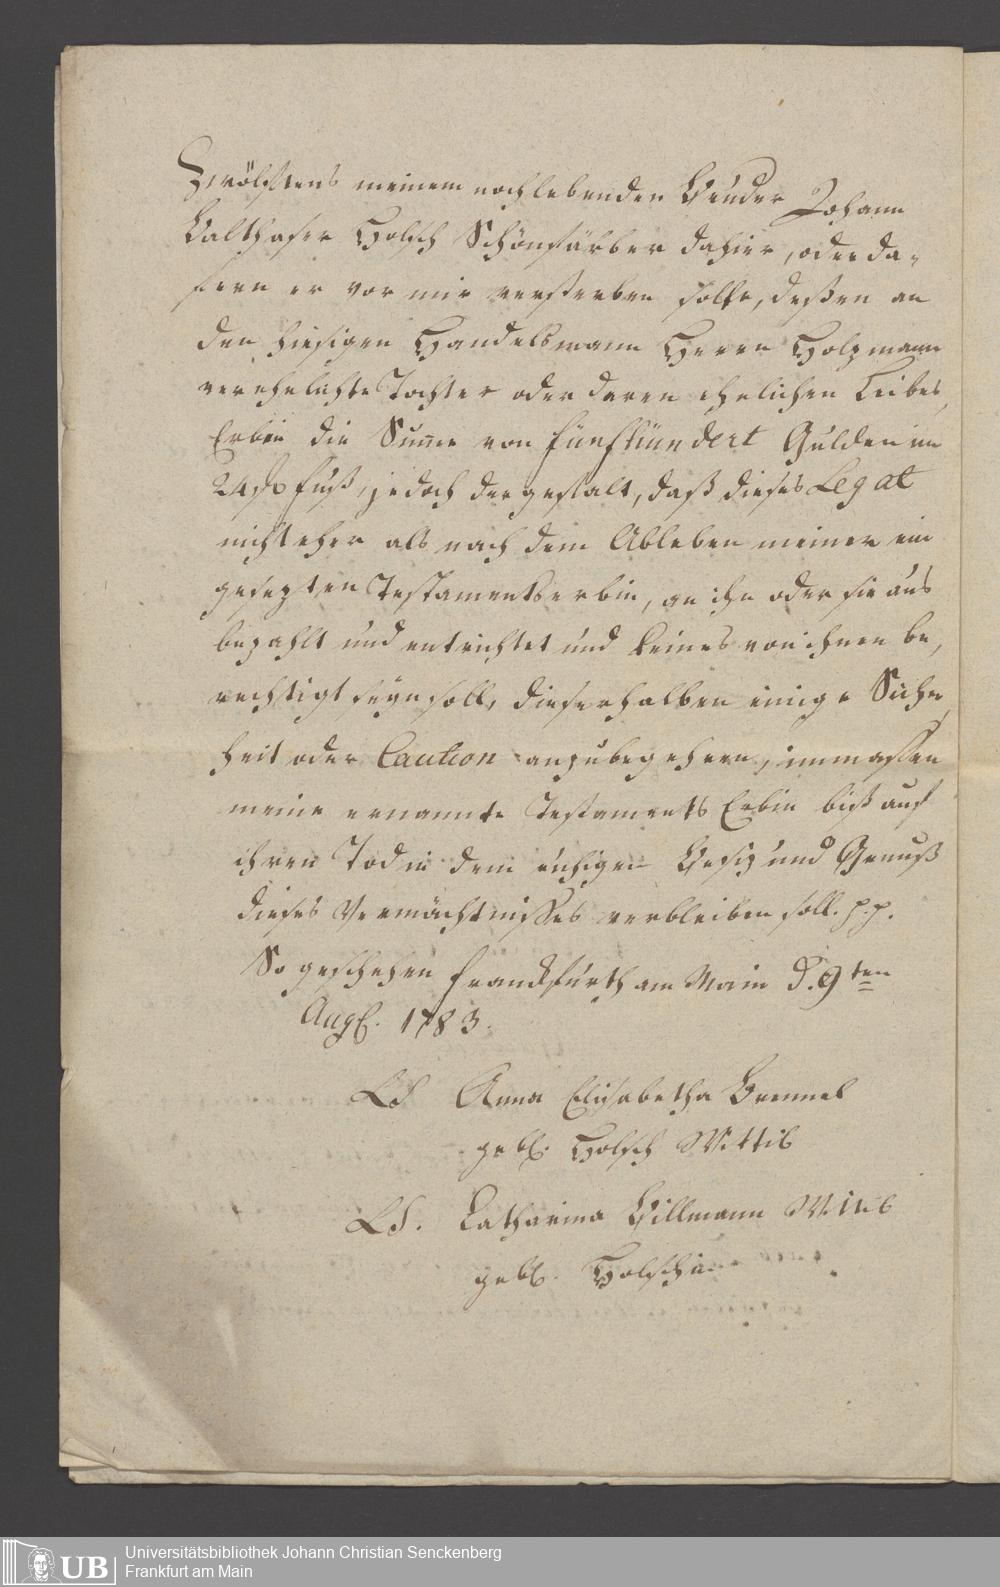 Zwölftens meinem noch lebenden Bruder Johann
Balthaser Holsch Schönfärber dahier, oder da-
fern er vor mir versterben sollte, deßen an
den hiesigen Handelsmann Herrn Holzmann
verehelichte Tochter oder deren ehelichen Leibes
Erben die Summe von fünfhundert Gulden im
24 fl. fuß, jedoch dergestalt, daß dieses Legat
nicht eher als nach dem Ableben meiner ein
gesezten Testamentserbin, an ihn oder sie aus
bezahlt und entrichtet und keines von ihnen be,
rechtigt seyn soll, dieserhalben einige Sicher
heit oder Caution anzubegehren, immassen
meine ernannte Testaments Erbin biß auf
ihren Tod in dem ruhigen Besiz und Genuß
dieses Vermächtnisses verbleiben soll. p.p.
So geschehen Franckfurth am Main d. 9ten
Aug. 1783.
LS Anna Elisabetha Bremmel
geb. Holsch Wittib
LS. Catharina Billmann Wittib
geb. Holschin
UB
Universitätsbibliothek Johann Christian Senckenberg
Frankfurt am Main